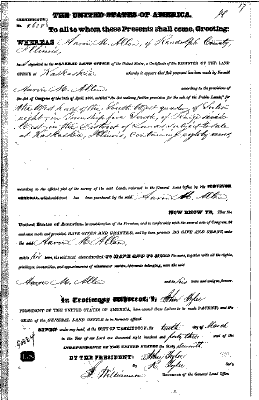 THE UNITED STATES OF AMERICA.
CERTIFICATE
To all to whom these Presents shall come, Greeting:
WHEREAS Aaron M. Allen, of Randolph County,
Illinois,
has deposited in the GENERAL LAND OFFICE of the United States, a Certificate of the REGISTER OF THE LAND
OFFICE at Kaskaskia whereby it appears that full payment has been made by the said
Aaron M. Allen according to the provisions of
the Act of Congress of the 24th of April, 1820, entitled "An Act making further provision for the sale of the Public Lands," for
the West half of the South West quarter of Section
eight in Township five South, of Range
West in the District of Lands subject to sale
at Kaskaskia, Illinois, containing eighty acres,
according to the official plat of the survey of the said Lands, returned to the General Land Office by the SURVEYOR
GENERAL, which said tract has been purchased by the said Aaron M. Allen
NOW KNOW YE, That the
United States of America, in consideration of the Premises, and in conformity with the several acts of Congress, in
such case made and provided, HAVE GIVEN AND GRANTED, and by these presents DO GIVE AND GRANT, unto
the said Aaron M. Allen
and to his heirs, the said tract above described: TO HAVE AND TO HOLD the same, together with all the rights,
privileges, immunities, and appurtenances of whatsoever nature, thereunto belonging, unto the said
Aaron M. Allen and to his heirs and assigns forever.
In Testimony Whereof, I, John Tyler
PRESIDENT OF THE UNITED STATES OF AMERICA, have caused these Letters to be made PATENT, and the
SEAL of the GENERAL LAND OFFICE to be hereunto affixed.
GIVEN under my hand, at the CITY OF WASHINGTON, the tenth day of March
in the Year of our Lord one thousand eight hundred and forty three and of the
INDEPENDENCE OF THE UNITED STATES the Sixty seventh
BY THE PRESIDENT: John Tyler
By R. Tyler
J. Williamson RECORDER of the General Land Office